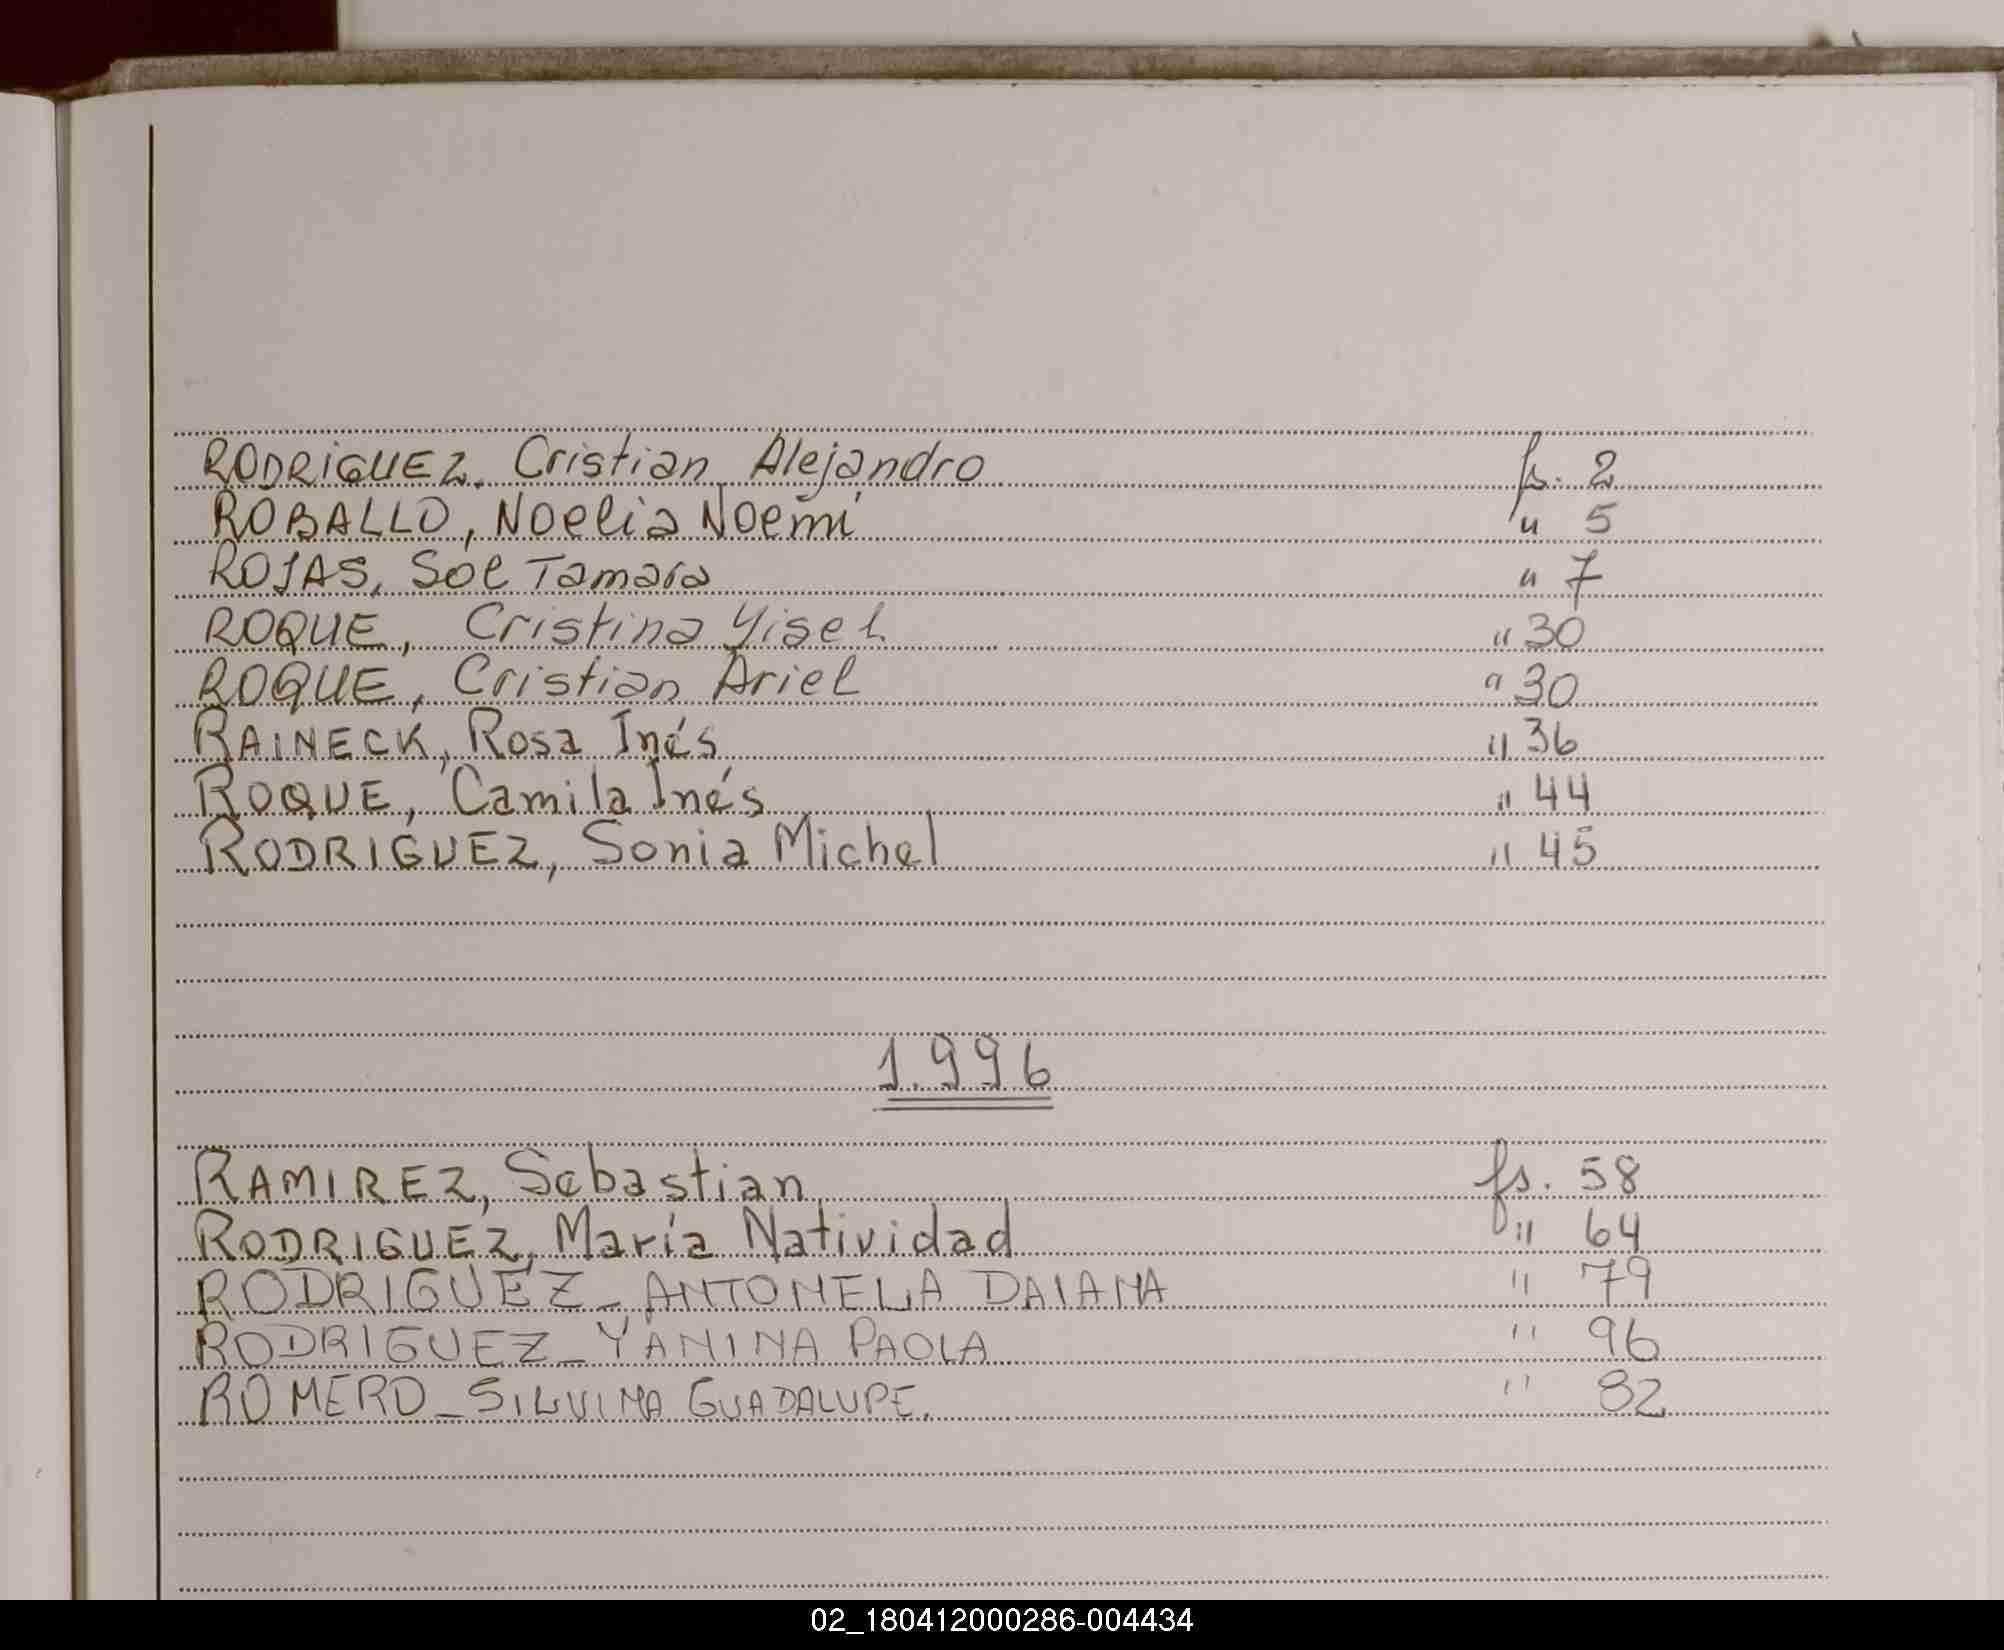 RODRIGUEZ, Cristian Alejandro fs. 2
ROBALLO, Noelia Noemí " 5
ROJAS, Sol Tamara " 7
ROQUE, Cristina Yisel " 30
ROQUE, Cristian Ariel " 30
RAINECK, Rosa Inés " 36
ROQUE, Camila Inés " 44
RODRIGUEZ, Sonia Michel " 45
1.996
RAMIREZ, Sebastian fs. 58
RODRIGUEZ, María Natividad " 64
RODRIGUEZ_ ANTONELA DAIANA " 79
RODRIGUEZ_ YANINA PAOLA " 96
ROMERO_ SILVINA GUADALUPE. " 82
02_180412000286-004434